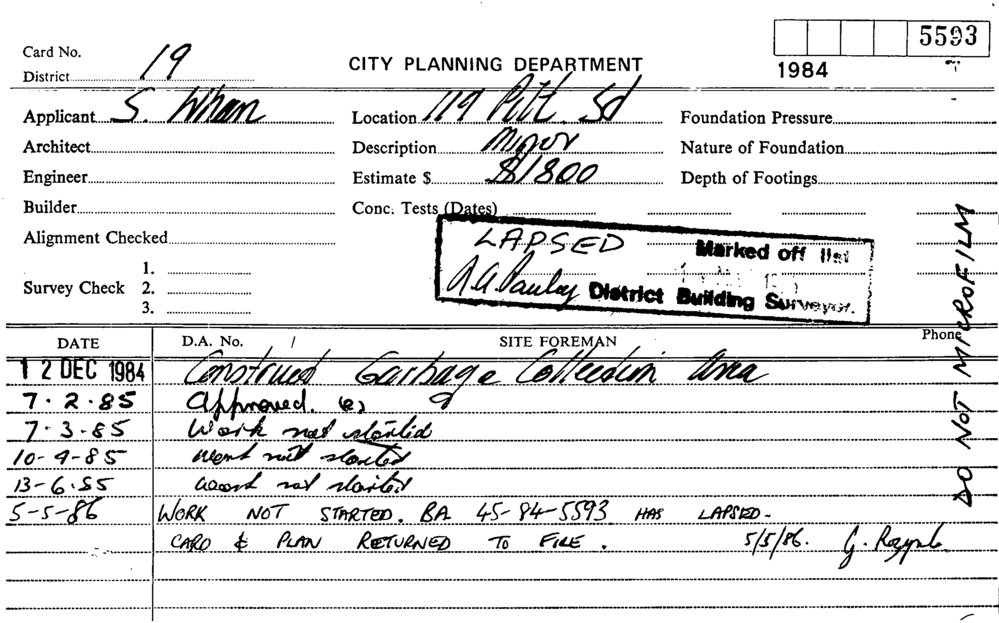 5593
Card No.
District 19
CITY PLANNING DEPARTMENT
1984
Applicant S. Whan
Location 119 Pitt. Sd
Foundation Pressure
Architect
Description Minor
Nature of Foundation
Engineer
Estimate $ $1800
Depth of Footings
Builder
Conc. Tests (Dates)
Alignment Checked
LAPSED Marked off list
Survey Check 1. 2. 3.
District Building Surveyor.
DATE D.A. No. SITE FOREMAN Phone
12 DEC 1984 Construct Garbage Collection Area
7.2.85 Approved.
7.3.85 Work not started
10-4-85 work not started
13-6.85 work not started
5-5-86 WORK NOT STARTED. BA 45-84-5593 HAS LAPSED.
CARD & PLAN RETURNED TO FILE. 5/5/86. G.
DO NOT MICROFILM